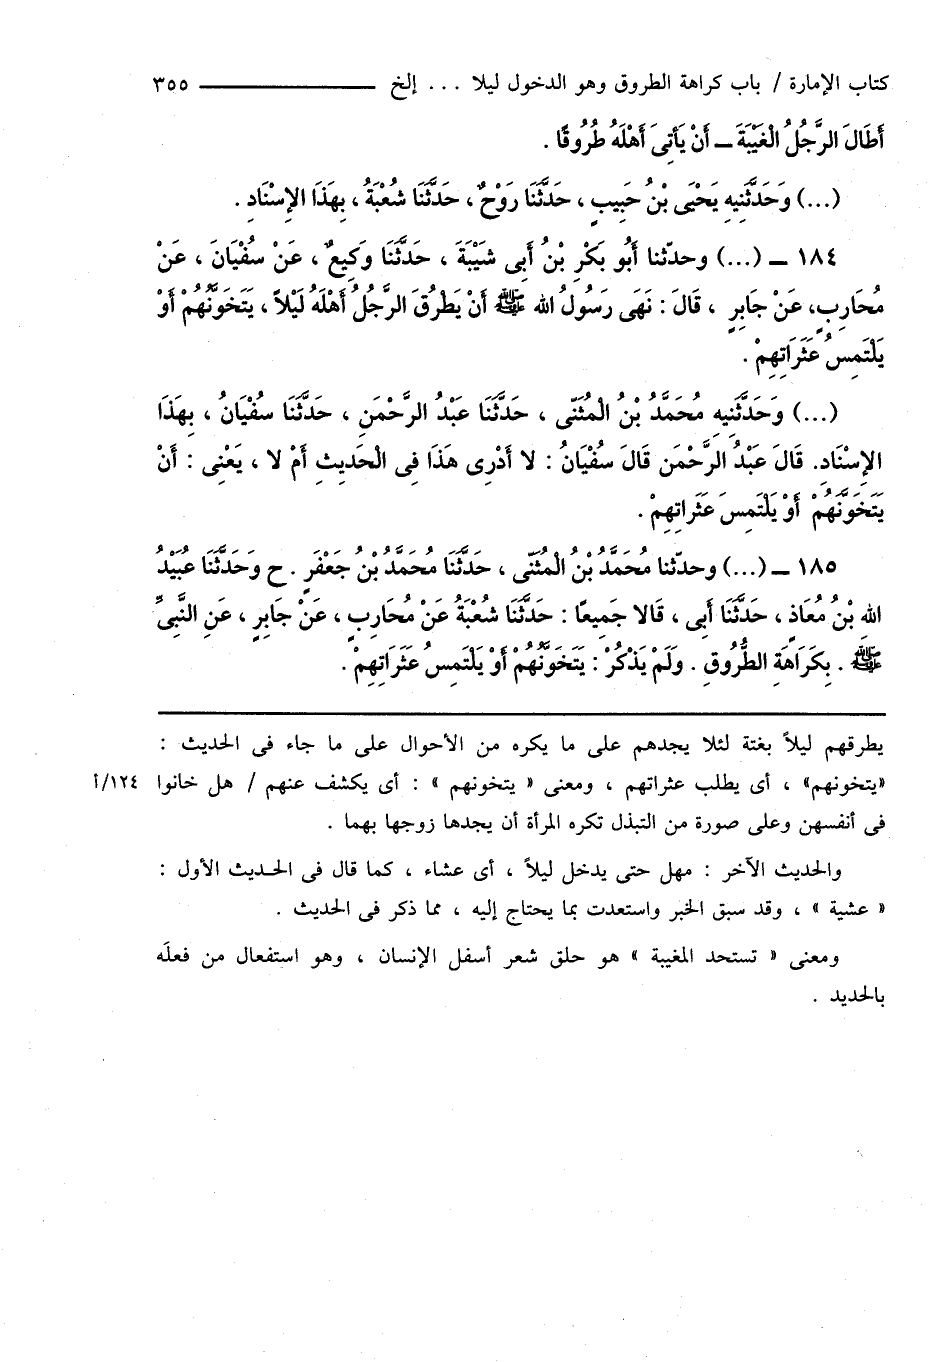 كتاب الإمارة / باب كراهة الطروق وهو الدخول ليلا ... إلخ ــــــــــــ ٣٥٥
أَطَالَ الرَّجُلُ الْغَيْبَةَ ــ أَنْ يَأْتِىَ أَهْلَهُ طُرُوقًا .
(...) وَحَدَّثَنِيهِ يَحْيَى بْنُ حَبِيبٍ ، حَدَّثَنَا رَوْحٌ ، حَدَّثَنَا شُعْبَةُ ، بِهَذَا الإِسْنَادِ .
١٨٤ ــ (...) وحدّثنا أَبُو بَكْرِ بْنُ أَبِى شَيْبَةَ ، حَدَّثَنَا وَكِيعٌ ، عَنْ سُفْيَانَ ، عَنْ
مُحَارِبٍ، عَنْ جَابِرٍ ، قَالَ : نَهَى رَسُولُ الله ﷺ أَنْ يَطْرُقَ الرَّجُلُ أَهْلَهُ لَيْلاً ، يَتَخَوَّنُهُمْ أَوْ
يَلْتَمِسُ عَثَرَاتِهِمْ .
(...) وَحَدَّثَنِيهِ مُحَمَّدُ بْنُ الْمُثَنّى ، حَدَّثَنَا عَبْدُ الرَّحْمَنِ ، حَدَّثَنَا سُفْيَانُ ، بِهَذَا
الإِسْنَادِ. قَالَ عَبْدُ الرَّحْمَنِ قَالَ سُفْيَانُ : لا أَدْرِى هَذَا فِى الْحَدِيثِ أَمْ لا ، يَعْنِى : أَنْ
يَتَخَوَّنَهُمْ أَوْ يَلْتَمِسَ عَثَرَاتِهِمْ .
١٨٥ ــ (...) وحدّثنا مُحَمَّدُ بْنُ الْمُثَنّى ، حَدَّثَنَا مُحَمَّدُ بْنُ جَعْفَرٍ . ح وَحَدَّثَنَا عُبَيْدُ
اللهِ بْنُ مُعَاذٍ ، حَدَّثَنَا أَبِى ، قَالا جَمِيعًا : حَدَّثَنَا شُعْبَةُ عَنْ مُحَارِبٍ ، عَنْ جَابِرٍ ، عَنِ النَّبِىِّ
ﷺ . بِكَرَاهَةِ الطُّرُوقِ . وَلَمْ يَذْكُرْ : يَتَخَوَّنُهُمْ أَوْ يَلْتَمِسُ عَثَرَاتِهِمْ .
يطرقهم ليلاً بغتة لئلا يجدهم على ما يكره من الأحوال على ما جاء فى الحديث :
«يتخونهم» ، أى يطلب عثراتهم ، ومعنى « يتخونهم » : أى يكشف عنهم / هل خانوا ١٢٤/أ
فى أنفسهن وعلى صورة من التبذل تكره المرأة أن يجدها زوجها بهما .
والحديث الآخر : مهل حتى يدخل ليلاً ، أى عشاء ، كما قال فى الحديث الأول :
« عشية » ، وقد سبق الخبر واستعدت بما يحتاج إليه ، مما ذكر فى الحديث .
ومعنى « تستحد المغيبة » هو حلق شعر أسفل الإنسان ، وهو استفعال من فعله
بالحديد .